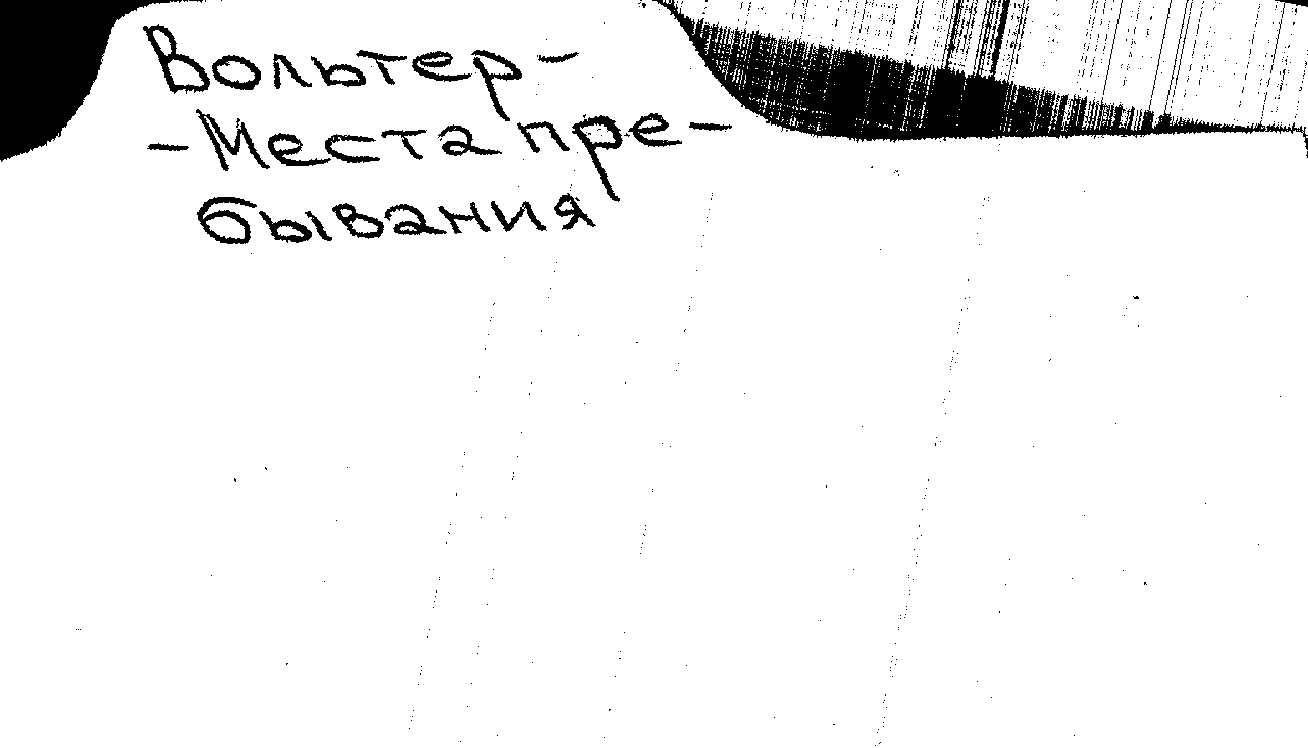 Вольтер-
-Места пре-
бывания